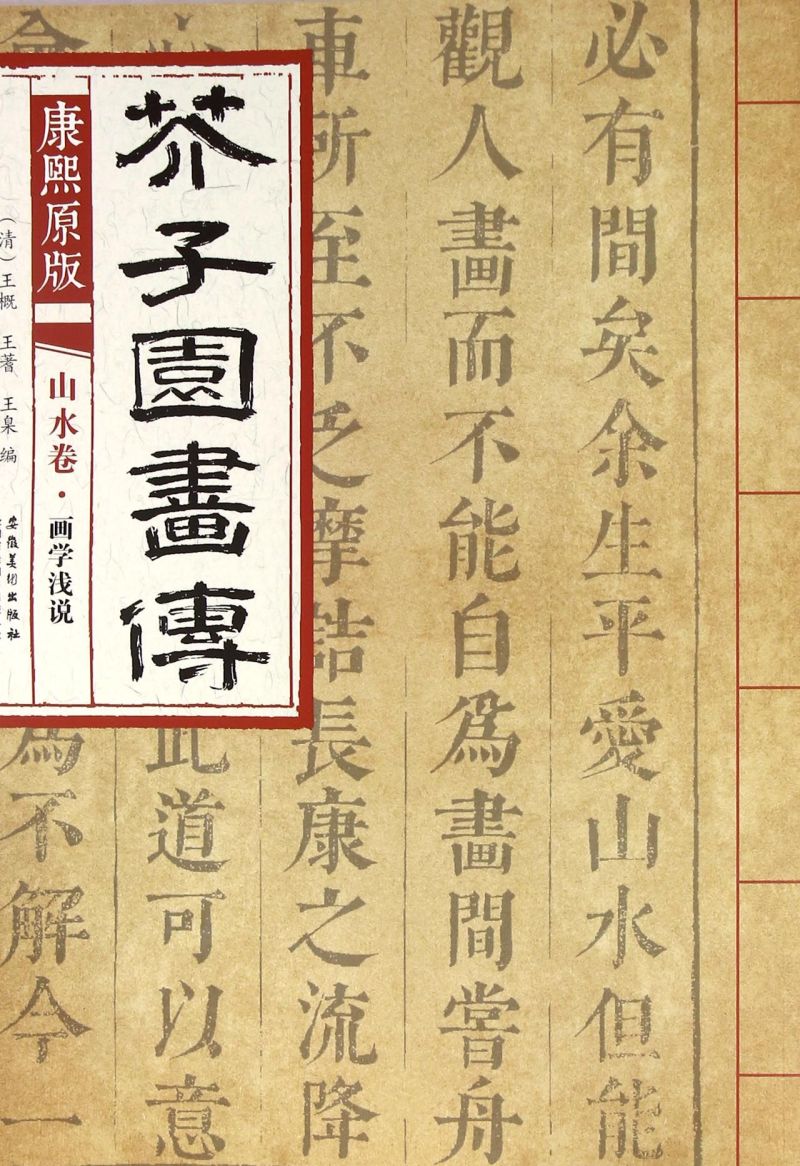 必有間矣余生平愛山水但能
觀人畫而不能自爲畫間嘗舟
車所至不乏摩詰長康之流降
此道可以意
爲不解今一
芥子園畫傳
康熙原版
山水卷·画学浅说
（清）王概 王蓍 王臬 编
安徽美术出版社